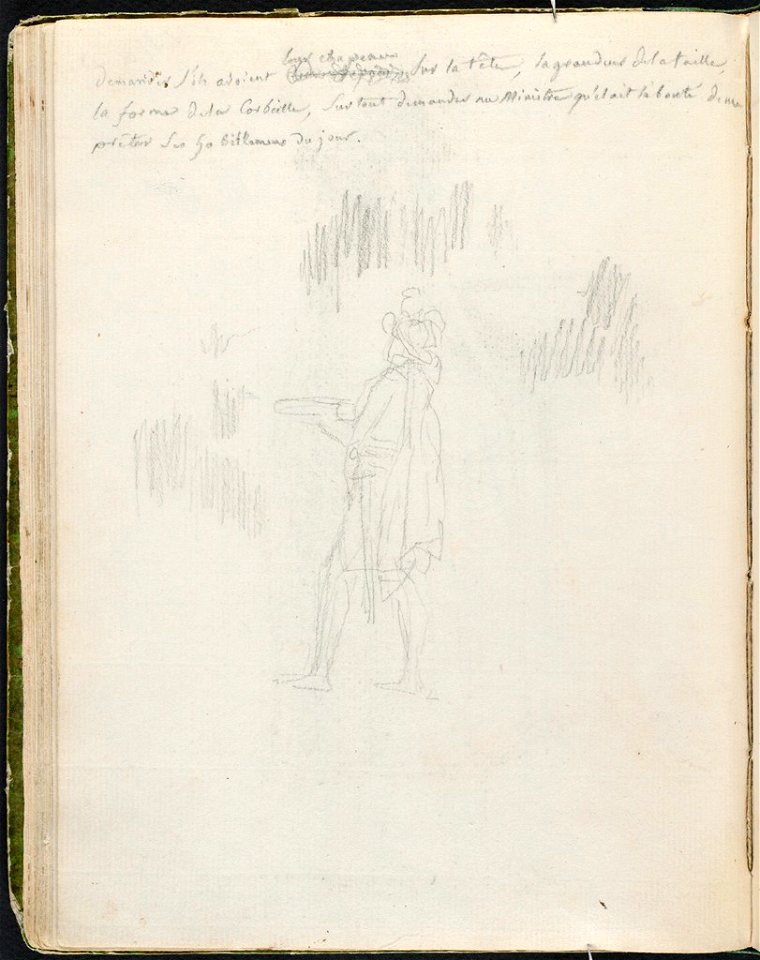 leurs chapeaux
demander s'ils avoient sur la tête, la grandeur de la taille,
la forme de la Corbeille, surtout demander au Ministre qu'il ait la bonté de me
prêter ses habillemens du jour.